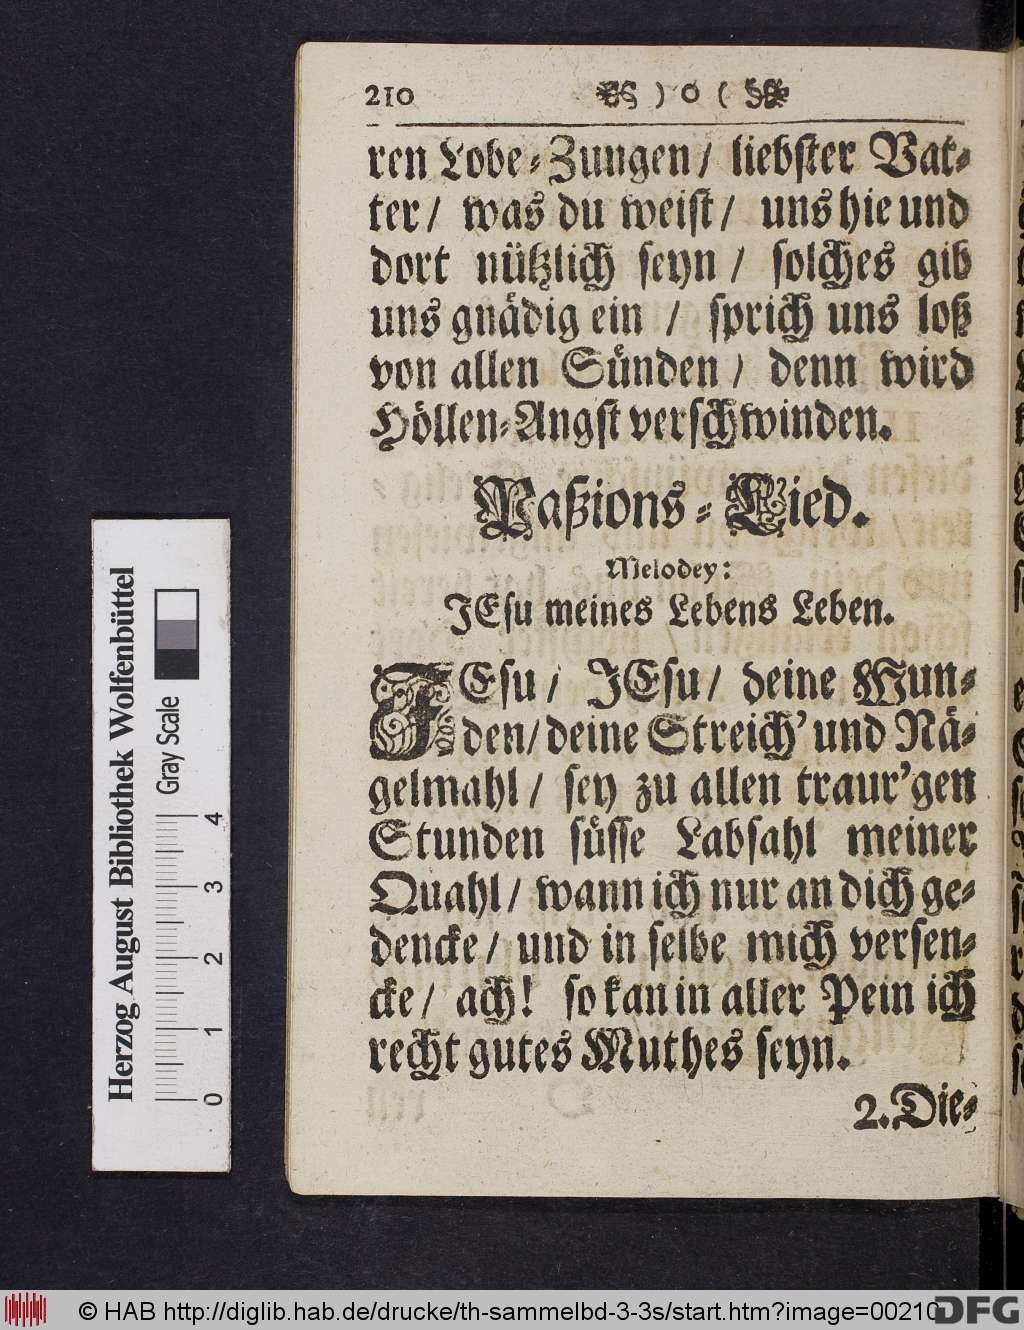 210 ) o (
ren Lobe-Zungen / liebster Vat-
ter / was du weist / uns hie und
dort nützlich seyn / solches gib
uns gnädig ein / sprich uns loß
von allen Sünden / denn wird
Höllen-Angst verschwinden.
Paßions-Lied.
Melodey:
JEsu meines Lebens Leben.
JEsu / JEsu / deine Wun-
den / deine Streich' und Nä-
gelmahl / sey zu allen traur'gen
Stunden süsse Labsahl meiner
Quahl / wann ich nur an dich ge-
dencke / und in selbe mich versen-
cke / ach! so kan in aller Pein ich
recht gutes Muthes seyn.
2. Die-
Herzog August Bibliothek Wolfenbüttel
Gray Scale
0 1 2 3 4
© HAB http://diglib.hab.de/drucke/th-sammelbd-3-3s/start.htm?image=00210
DFG